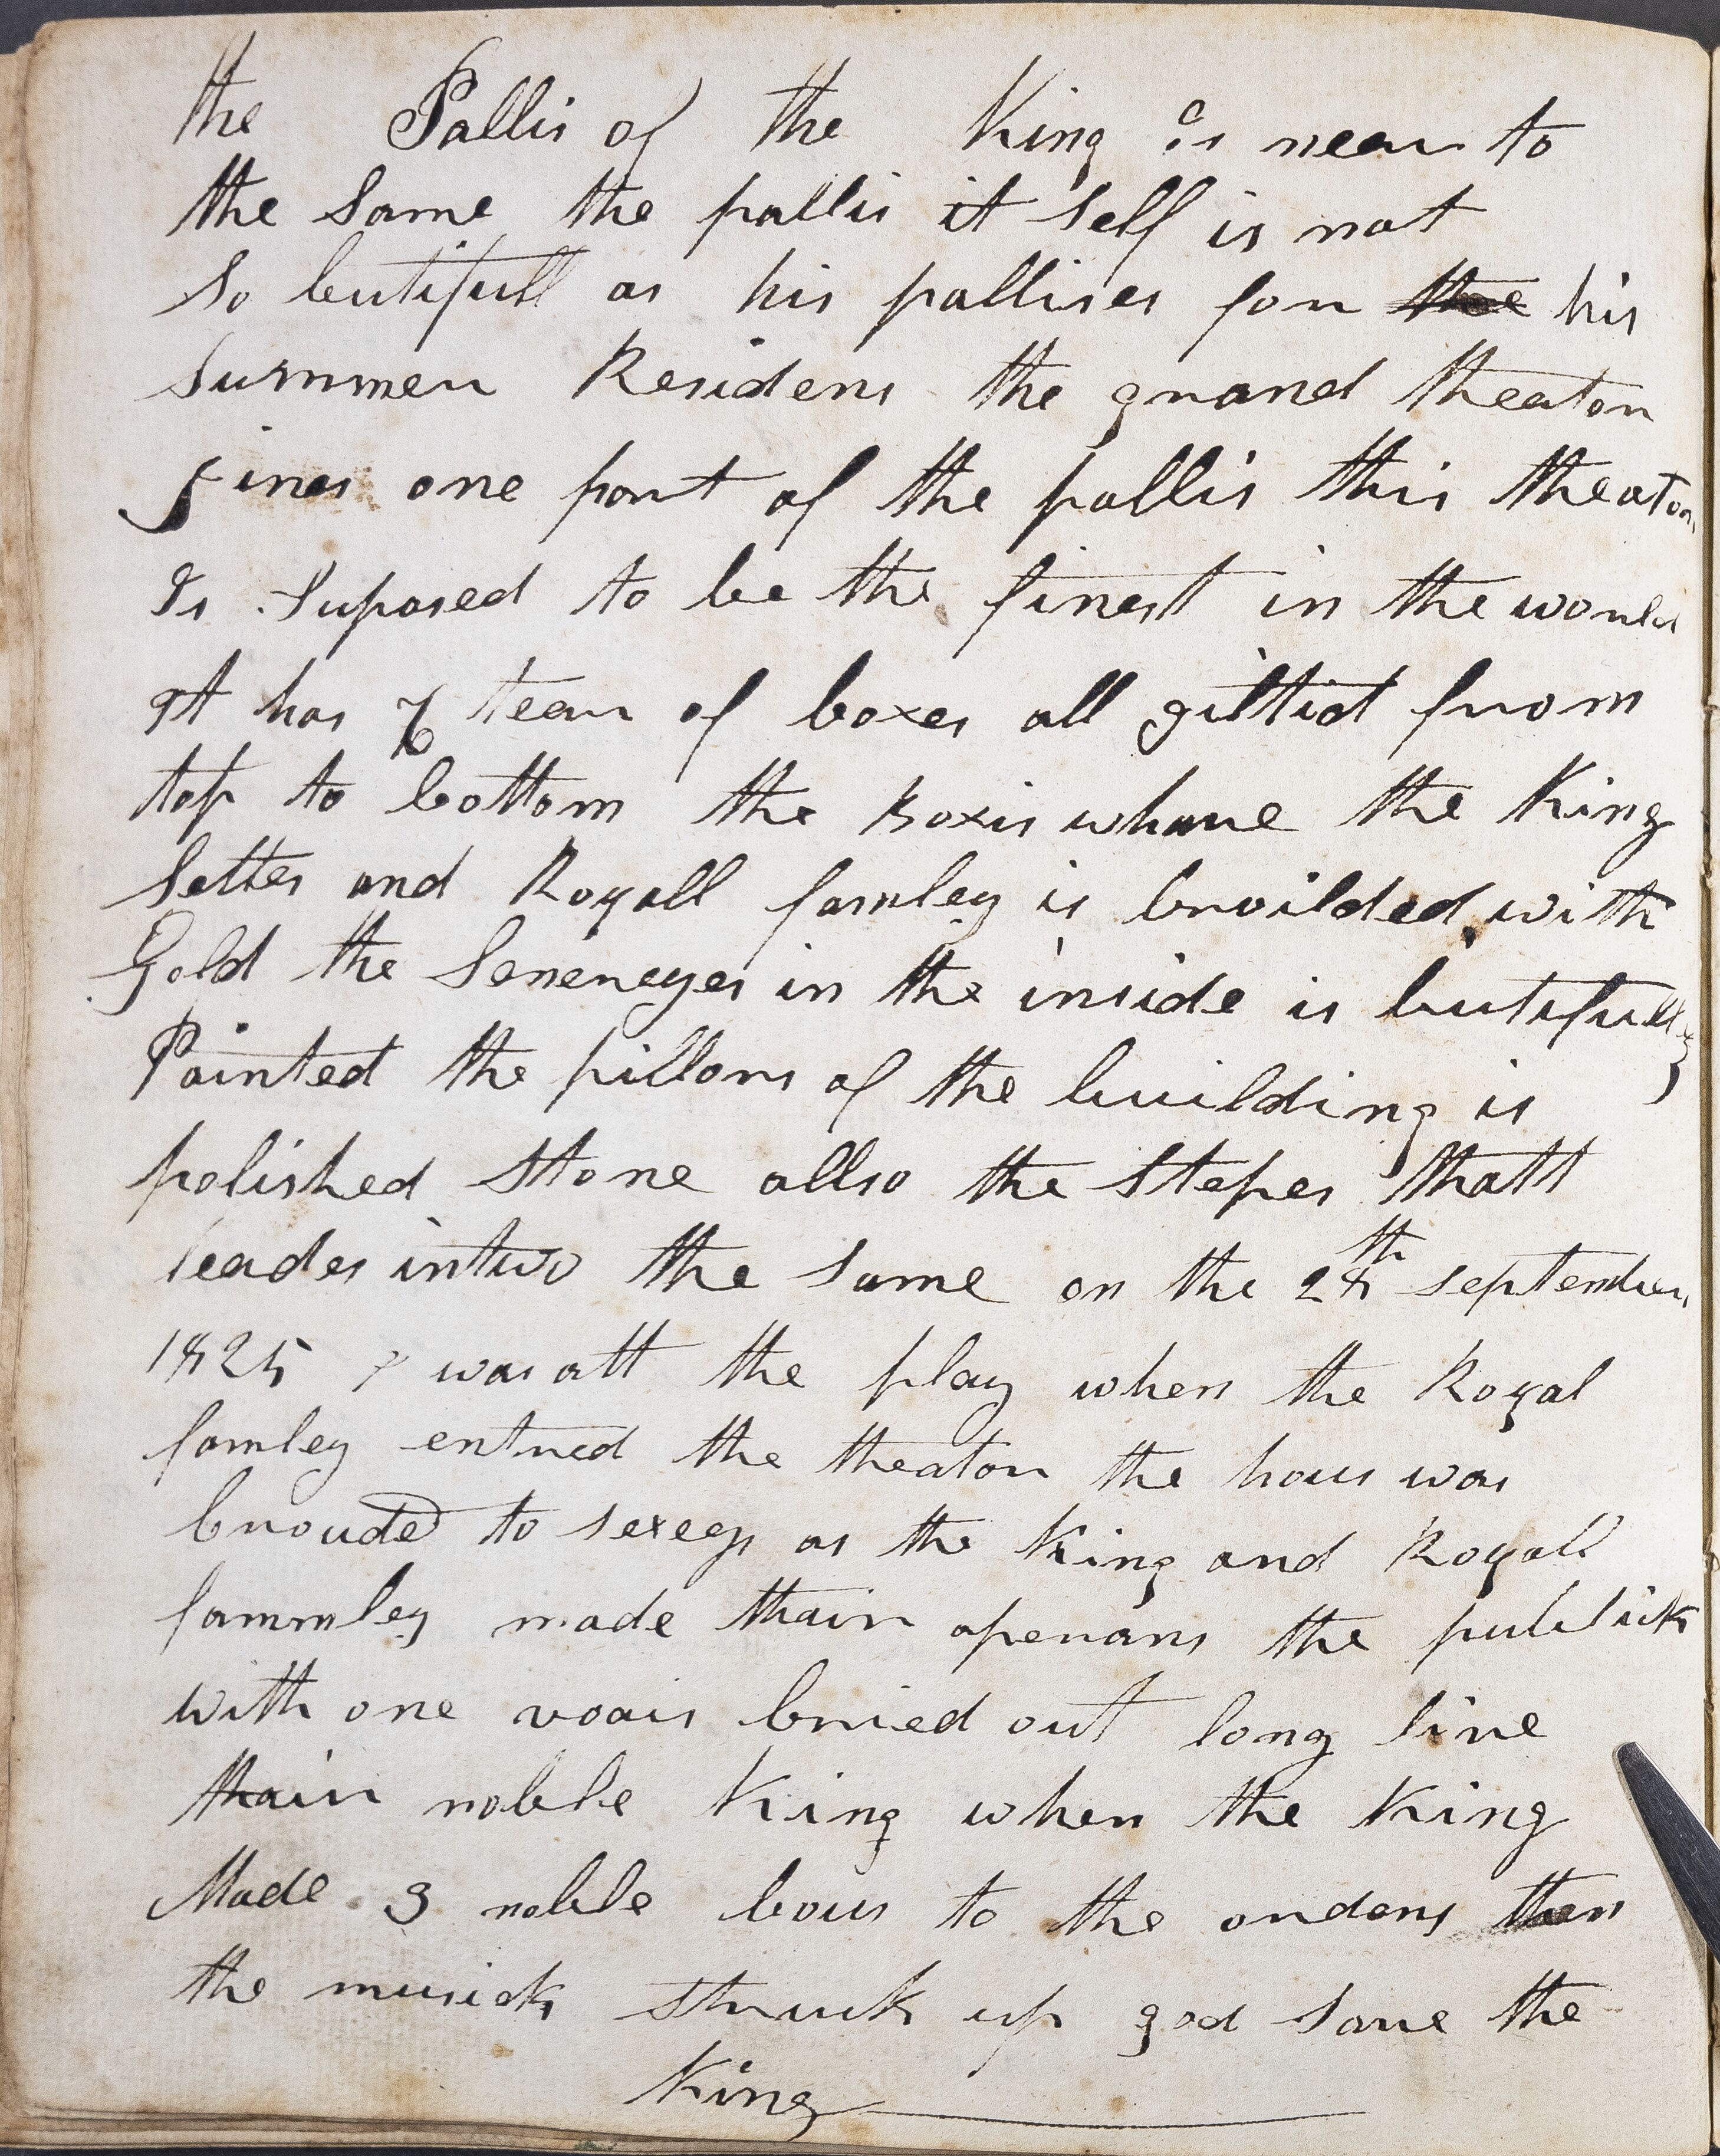 the Pallis of the King is near to
the same the pallis it self is not
so butifull as his pallises for the his
summer Residens the grand theator
jines one part of the pallis this theator
Is suposed to be the finest in the world
It has 6 tear of boxes all giltid from
top to bottom the Boxis whare the King
settes and Royall famley is broilded with
Gold the Senereyes in the inside is butifully
Painted the pillors of the building is
polished stone allso the stepes thatt
leades intwo the same on the 28th september
1825 I was att the play when the Royal
famley entred the theator the hous was
Crouded to sexegs as the King and Royall
fammley made thair aperans the publick
with one voais Cried out long live
thair noble King when the King
Made 3 noble bous to the ordens then
the musick struck up god save the
King